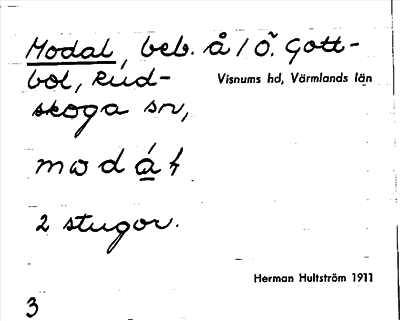 Modal, beb. å/Ö. Gott-
bol, Rud-
skoga sn,
Visnums hd, Värmlands län
2 stugor.
Herman Hultström 1911
3